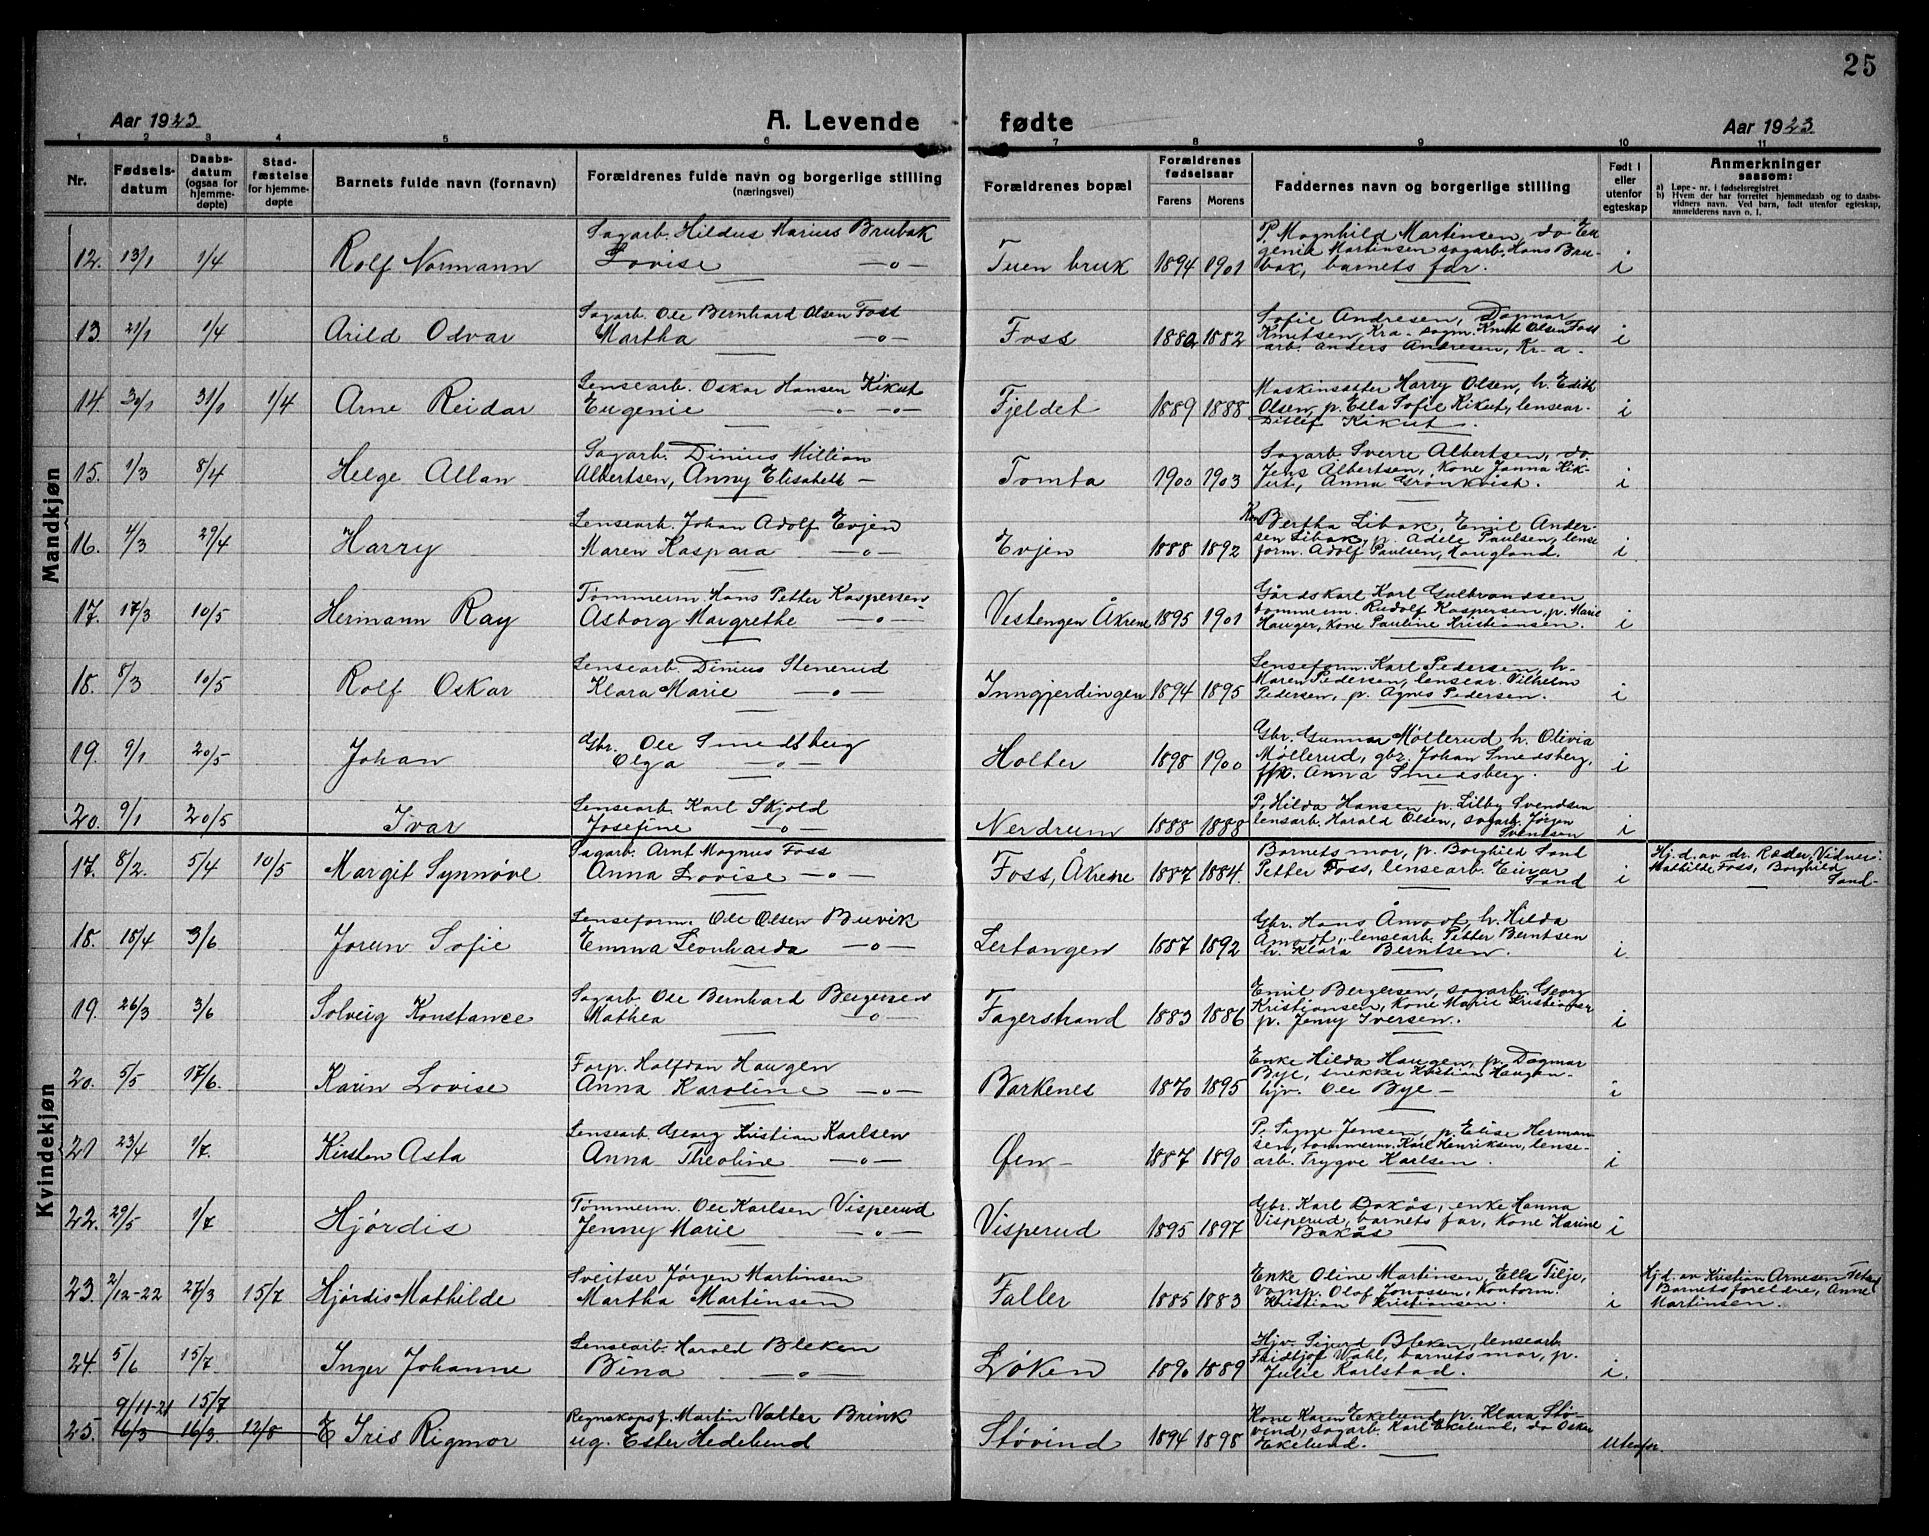 25
Aar 1923 A. Levende fødte Aar 1923
1 2 3 4 5 6 7 8 9 10 11
Nr. Fødselsdatum Daabsdatum (ogsaa for hjemmedøpte) Stadfæstelse for hjemmedøpte Barnets fulde navn (fornavn) Forældrenes fulde navn og borgerlige stilling (næringsvei) Forældrenes bopæl Forældrenes fødselsaar Farens Morens Faddernes navn og borgerlige stilling Født i eller utenfor egteskap Anmerkninger saasom:
a) Løpe-nr. i fødselsregistret
b) Hvem der har forrettet hjemmedaab og to daabsvidners navn. Ved barn, født utenfor egteskap, anmelderens navn o. l.
Mandkjøn
12. 13/1 1/4 Rolf Normann Sagarb. Hildus Marius Brubak Lovise —o— Tuen bruk 1894 1901 P. Magnhild Martinsen, do Eugenie Martinsen sagarb. Hans Brubak, barnets far. i
13. 21/1 1/4 Arild Odvar Sagarb. Ole Bernhard Olsen Foss Martha —o— Foss 1882 1882 Sofie Andresen, Dagmar Knutsen, Kra- sagm. Knut Olsen Foss arb. Anders Andresen, Kr-a. i
14. 30/1 31/1 1/4 Arne Reidar Lensearb. Oskar Hansen Kikut Eugenie —o— —o— Fjeldet 1889 1888 Maskinsætter Harry Olsen, h. Edith Olsen, p. Ella Sofie Kikut, lensear- Ditlef Kikut. i
15. 1/3 8/4 Helge Allan Sagarb. Dinius Million Albertsen, Anny Elisabeth — Tomta 1900 1903 Sagarb Sverre Albertsen, do. Jens Albertsen, Kone Janna Kikut, Anna Grönkvist. i
16. 4/3 29/4 Harry Lensearb. Johan Adolf Evjen Maren Kaspara —o— Evjen 1888 1892 Kone Bertha Libak, Emil Andersen Libak, p. Adele Paulsen, lense form. Adolf Paulsen, Haugland. i
17. 17/3 10/5 Hermann Ray Tømmerm. Hans Petter Kaspersen Asborg Margrethe —o— Vestengen Åkrene 1895 1901 Gårdskarl Karl Gulbrandsen tømmerm. Rudolf Kaspersen, p. Marie Hauger, Kone Pauline Kristiansen. i
18. 8/3 10/5 Rolf Oskar Lensearb. Dinius Stenerud Klara Marie —o— Inngjerdingen 1894 1895 Lenseform. Karl Pedersen, h. Maren Pedersen, lensear. Vilhelm Pedersen, p. Agnes Pedersen. i
19. 9/1 20/5 Johan Gbr. Ole Smedsberg Olga —o— Holter 1898 1900 Gbr. Gunnar Møllerud h. Olivia Møllerud, gbr. Johan Smedsberg, fpk. Anna Smedsberg. i
20. 9/1 20/5 Ivar Lensearb Karl Skjold Josefine —o— Nerdrum 1888 1888 P. Hilda Hansen p. Lilby Svendsen lensearb. Harald Olsen, sagarb. Jørgen Svendsen i
Kvindekjøn
17. 8/2. 5/4 10/5 Margit Synnøve Sagarb. Arnt Magnus Foss Anna Lovise —o— Foss, Åkrene 1887 1884. Barnets mor, p. Borghild Sand Petter Foss, lensearb. Einar Sand i Hj. d. av dr. Ræder, Vidner: Mathilde Foss, Borghild Sand-
18. 18/4 3/6 Jorun Sofie Lenseform. Ole Olsen Buvik Emma Leonharda —o— Lertangen 1887 1892 Gbr. Hans Åmodt, h. Hilda Åmodt, lensearb. Petter Berntsen h. Klara Berntsen. i
19. 26/3 3/6 Solveig Konstance Sagarb. Ole Bernhard Bergersen Mathea —o— Fagerstrand 1883 1886 Emil Bergersen, sagarb. Georg Kristiansen, Kone Marie Kristianser p. Jenny Iversen. i
20. 5/5 17/6. Karin Lovise Forp. Halfdan Haugen Anna Karoline —o— Barkenes 1870 1895 Enke Hilda Haugen, p. Dagmar Bye, snekker Kristian Haugen. hjv. Ole Bye — i
21 23/4 1/7. Kirsten Asta Lensearb. Georg Kristian Karlsen Anna Theoline —o— Øen — 1887 1890 P. Signe Jensen, p. Elise Hermansen, tømmerm. Karl Henriksen, lensearb. Trygve Karlsen. i
22. 29/5 1/7 Hjørdis Tømmerm. Ole Karlsen Visperud Jenny Marie —o— Visperud 1895 1897 Gbr. Karl Bakås, enke Hanna Visperud, barnets far, Kone Karine Bakås i
23. 2/12-22 27/3 15/7 Hjørdis Mathilde Sveitser Jørgen Martinsen Martha Martinsen Faller 1885 1883 Enke Oline Martinsen, Ella Tilje, vogmp. Olaf Jonassen, Kontorm. Kristian Kristiansen. i Hj d. av Kristian Arnesen Barnets foreldre, Anne Martinsen.
24. 5/6 15/7 Inger Johanne Lensearb. Harald Bleken Bina —o— Løken 1890 1889 Hjv. Sigurd Bleken, lensearb. Fridtjof Wahl, barnets mor, p. Julie Karlstad. i.
9/11-21 15/7
25. 16/3 16/3. 12/8 E Iris Rigmor Regnskapsf. Martin Valter Brink ug. Ester Hedelund Støvind 1894 1898 Kone Karen Ekelund, p. Klara Støvind, sagarb. Karl Ekelund, do Oskar Ekelund. utenfor